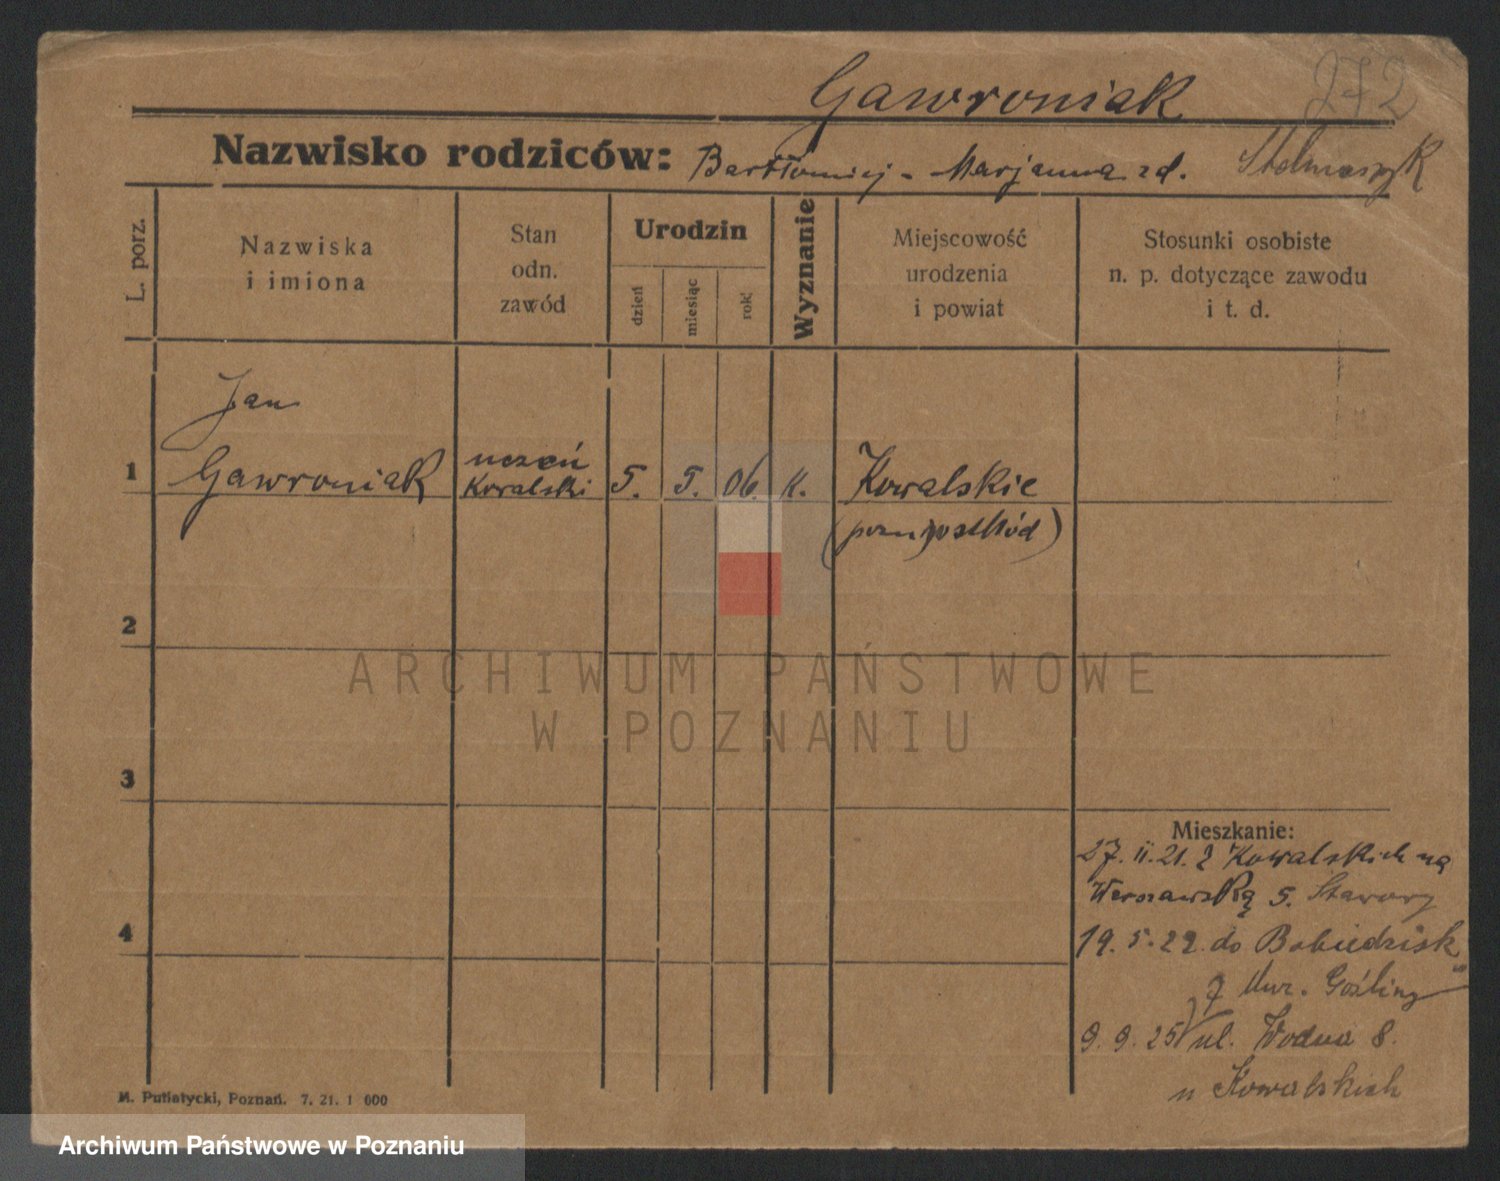 Gawroniak
272
Nazwisko rodziców: Bartłomiej - Marjanna zd. Stelmaszyk
L. porz.
Nazwiska
i imiona
Stan
odn.
zawód
Urodzin
dzień
miesiąc
rok
Wyznanie
Miejscowość
urodzenia
i powiat
Stosunki osobiste
n. p. dotyczące zawodu
i t. d.
Jan
1 Gawroniak
uczeń
Kowalski
5. 5. 06. k. Kowalskie
2
3
4
Mieszkanie:
27. II. 21. z Kowalskich na
Warszawską 5.
19. 5. 22 do
z Mur. Gośliny
9. 9. 25 ul. Wodna 8.
u Kowalskich
M. Putiatycki, Poznań. 7. 21. 1 000
ARCHIWUM PAŃSTWOWE
W POZNANIU
Archiwum Państwowe w Poznaniu